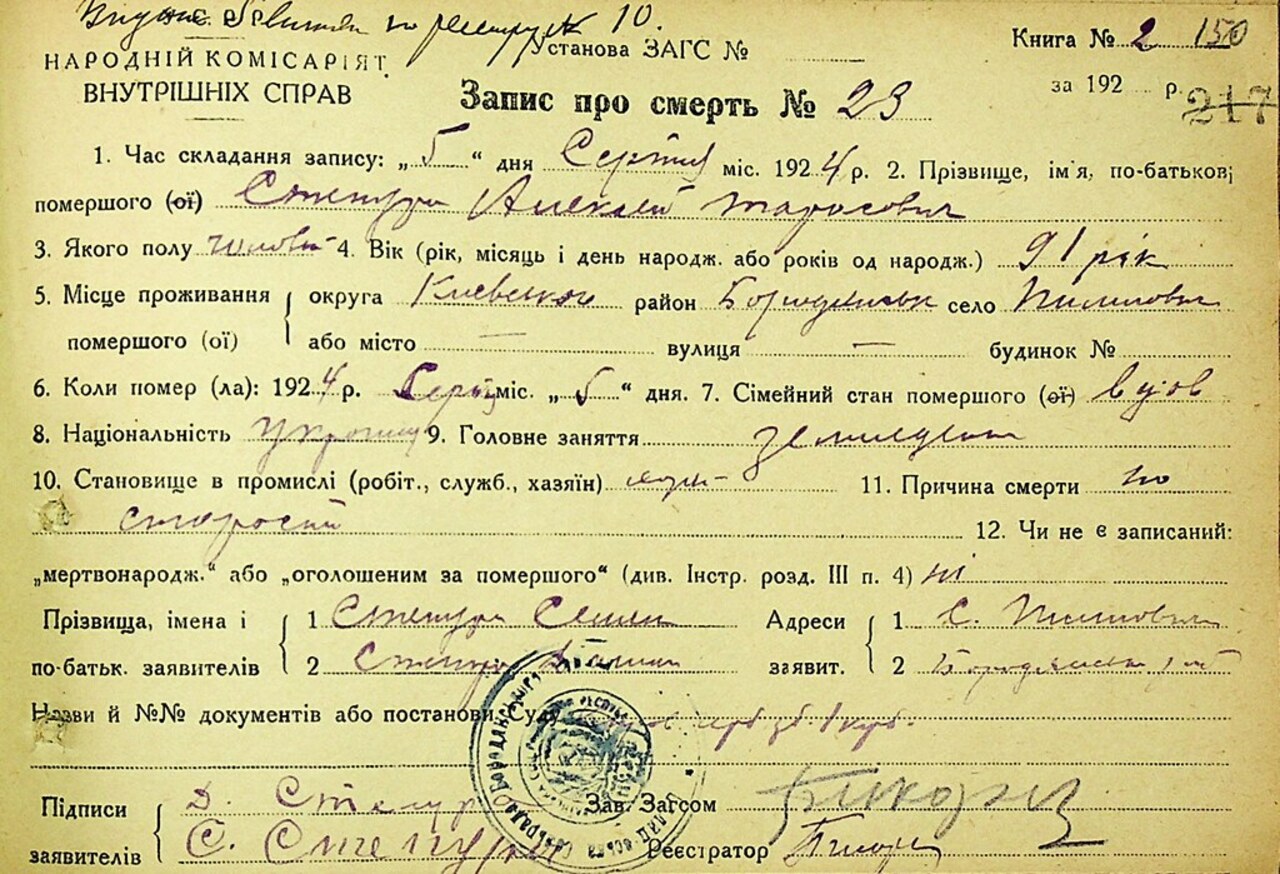 по реестру № 10.
Установа ЗАГС №
Книга № 2 150
НАРОДНІЙ КОМІСАРІЯТ
ВНУТРІШНІХ СПРАВ
за 192 р. 217
Запис про смерть № 23
1. Час складання запису: „5“ дня Серпня міс. 1924 р. 2. Прізвище, ім'я, по-батькові
помершого (ої) Степура Алексей Тарасович
3. Якого полу чолові 4. Вік (рік, місяць і день народж. або років од народж.) 91 рік
5. Місце проживання округа Киевської район Бородянськ село Пилиповичі
помершого (ої) або місто — вулиця — будинок №
6. Коли помер (ла): 1924 р. Серпня міс. „5“ дня. 7. Сімейний стан помершого (ої) вдов
8. Національність Украинец 9. Головне заняття
10. Становище в промислі (робіт., служб., хазяїн) 11. Причина смерти по
старости
12. Чи не є записаний:
„мертвонародж.“ або „оголошеним за помершого“ (див. Інстр. розд. III п. 4) ні
Прізвища, імена і 1 Степура Семен Адреси 1 С. Пилиповичі
по-батьк. заявителів 2 Степура заявит. 2
Назви й №№ документів або постанови Суду
Підписи Д. Степура Зав. Загсом
заявителів С. Степура Реєстратор